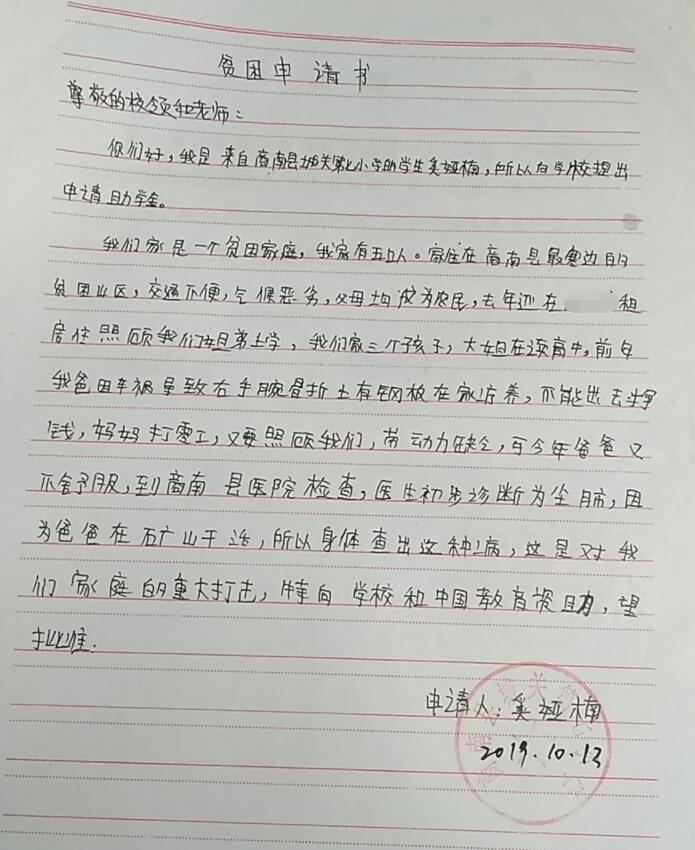 贫困申请书
尊敬的校领和老师：
你们好，我是来自商南县城关第七小学的学生奚娅楠，所以向学校提出
申请助学金。
我们家是一个贫困家庭，我家有五口人。家住在商南县最寒边的
贫困山区，交通不便，气候恶劣，父母均没为农民，去年还在 租
房住照顾我们姐弟上学，我们家三个孩子，大姐在读高中，前年
我爸因车祸导致右手腕骨折上有钢板在家培养，不能出去挣
钱，妈妈打零工，又要照顾我们，劳动力缺乏，于今年爸爸又
不舒服，到商南县医院检查，医生初步诊断为尘肺，因
为爸爸在矿山干活，所以身体查出这种病，这是对我
们家庭的重大打击，特向学校和中国教育资助，望
批准.
申请人：奚娅楠
2019.10.13